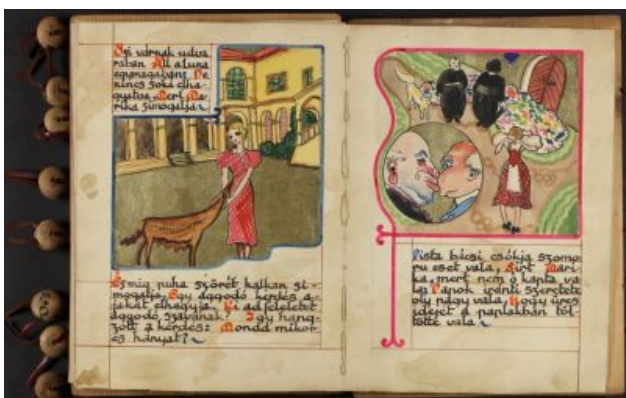 Ősi várnak udva
rában Áll a tuna
egymagában De
nincs soká elha-
gyatva Mert Ma-
rika simogatja
És míg puha szőrét halkan si-
mogatja, Egy aggódó kérdés a-
jakát elhagyja, Ki ad feleletet
aggódó szavának? Így hang-
zott a kérdés: Mondd mikor
és hányat?
Pista bácsi csókja szomo
ru eset vala, Sirt Mari
ka, mert nem ő kapta va
la Papok iránti szeretete
oly nagy vala, Hogy üres
idejét a paplakban töl-
tötte vala